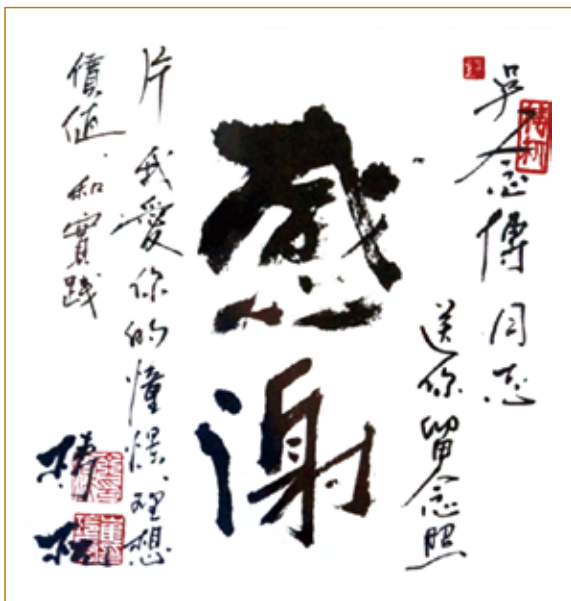 吳念博同志
送你留念照
感謝
片 我愛你的憧憬、理想
價值、和實踐